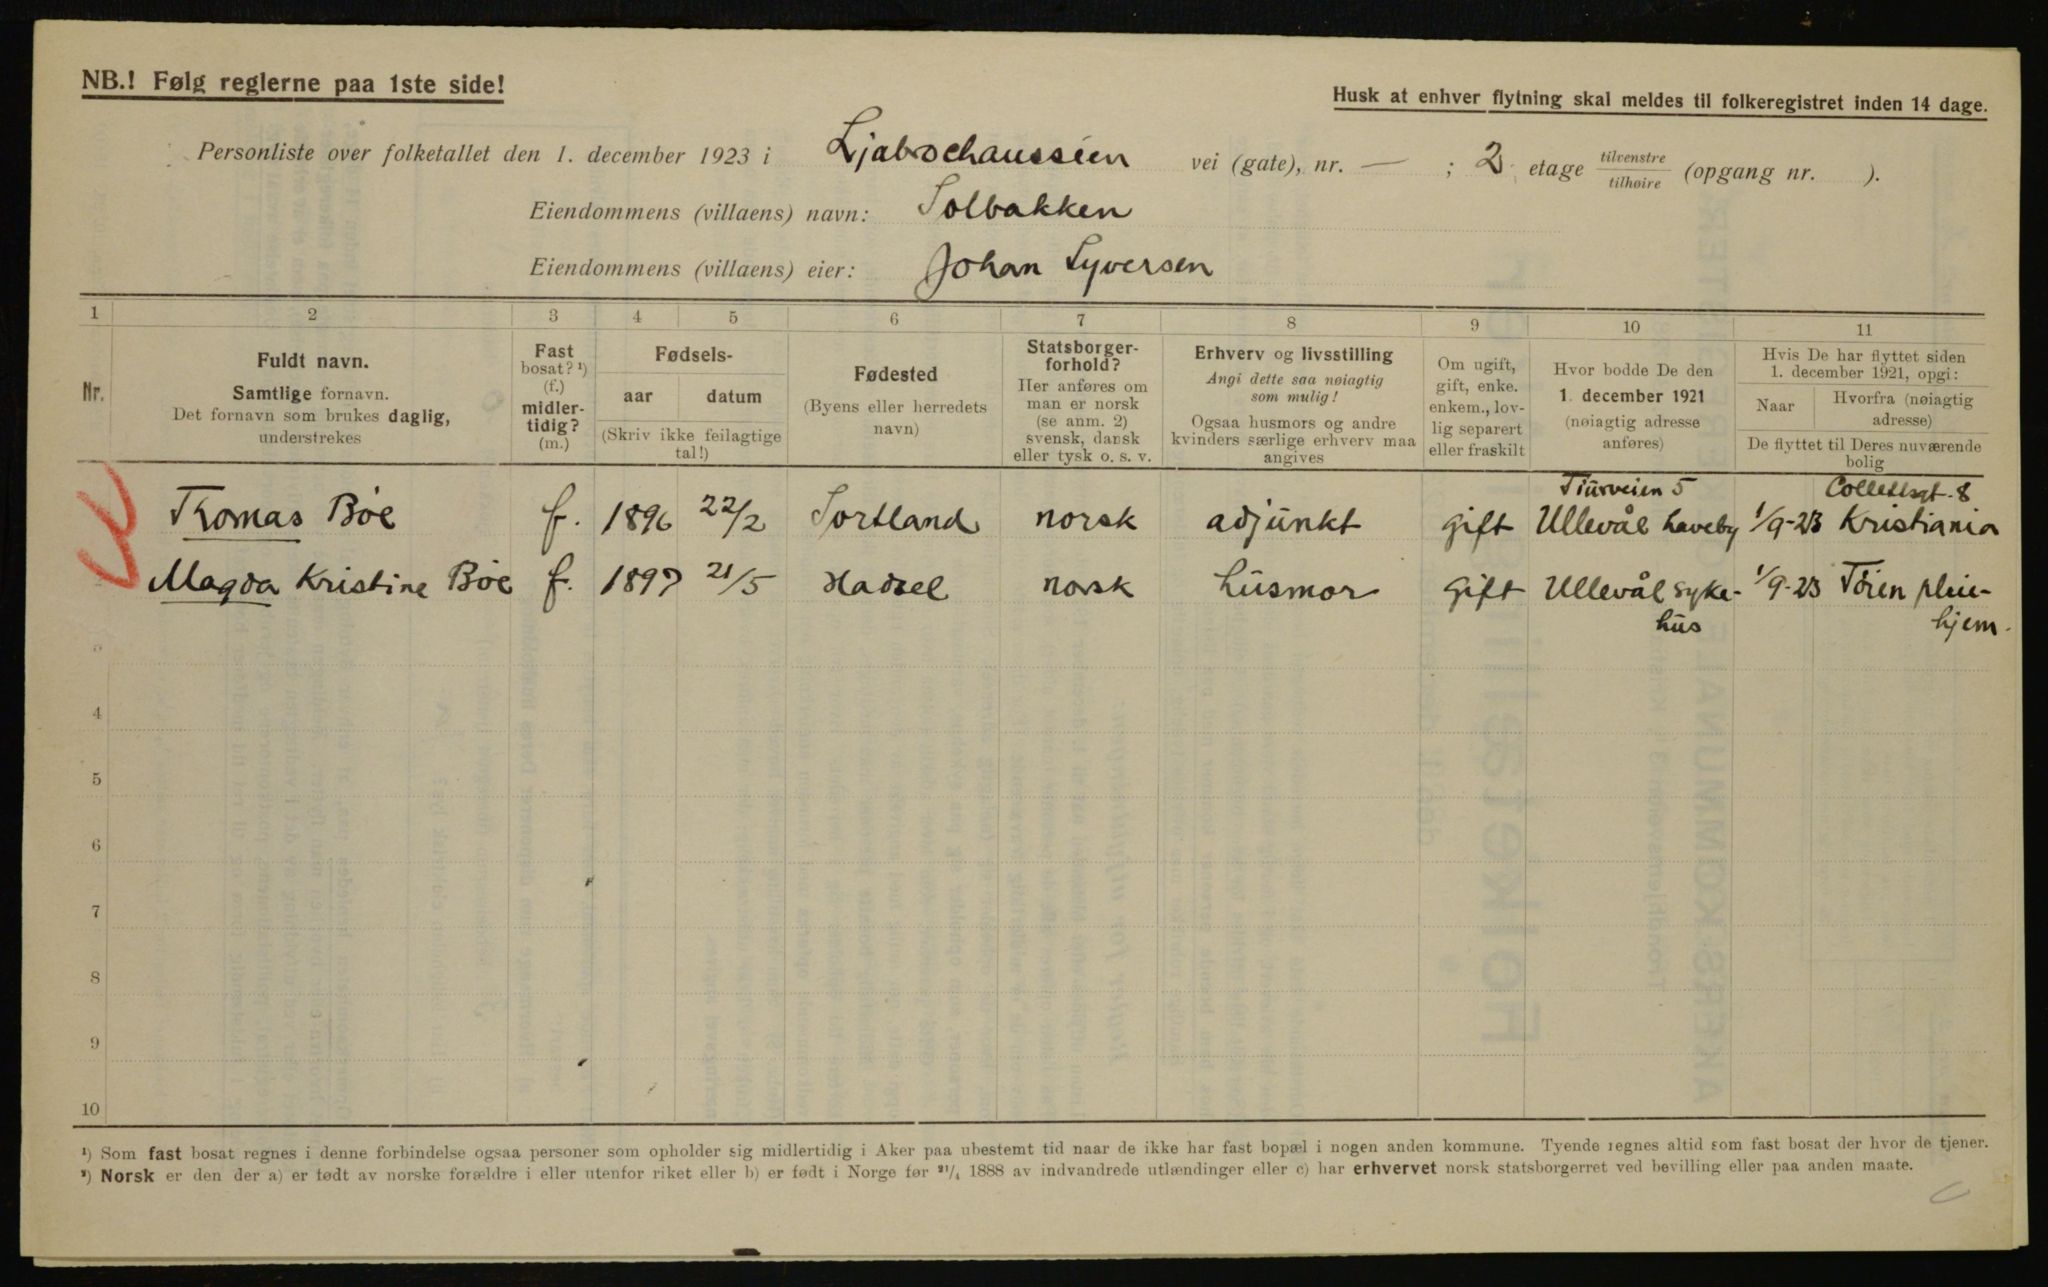 NB.! Følg reglerne paa 1ste side!
Husk at enhver flytning skal meldes til folkeregistret inden 14 dage.
Personliste over folketallet den 1. december 1923 i Ljabrochausséen vei (gate), nr. — ; 2 etage tilvenstre / tilhøire (opgang nr. ).
Eiendommens (villaens) navn: Solbakken
Eiendommens (villaens) eier: Johan Syversen
1 2 3 4 5 6 7 8 9 10 11
Nr.
Fuldt navn.
Samtlige fornavn.
Det fornavn som brukes daglig,
understrekes
Fast
bosat? ¹)
(f.)
midler-
tidig?
(m.)
Fødsels-
aar datum
(Skriv ikke feilagtige
tal!)
Fødested
(Byens eller herredets
navn)
Statsborger-
forhold?
Her anføres om
man er norsk
(se anm. 2)
svensk, dansk
eller tysk o. s. v.
Erhverv og livsstilling
Angi dette saa nøiagtig
som mulig!
Ogsaa husmors og andre
kvinders særlige erhverv maa
angives
Om ugift,
gift, enke.
enkem., lov-
lig separert
eller fraskilt
Hvor bodde De den
1. december 1921
(nøiagtig adresse
anføres)
Hvis De har flyttet siden
1. december 1921, opgi:
Naar
Hvorfra (nøiagtig
adresse)
De flyttet til Deres nuværende
bolig
Tiurveien 5 Collettsgt. 8
Thomas Bòe f. 1896 22/2 Sortland norsk adjunkt gift Ullevål haveby 1/9-23 Kristiania
Magda Kristine Bòe f. 1897 21/5 Hadsel norsk husmor gift Ullevål syke- 1/9-23 Tòien pleie-
hus hjem.
3
4
5
6
7
8
9
10
¹) Som fast bosat regnes i denne forbindelse ogsaa personer som opholder sig midlertidig i Aker paa ubestemt tid naar de ikke har fast bopæl i nogen anden kommune. Tyende regnes altid som fast bosat der hvor de tjener.
²) Norsk er den der a) er født av norske forældre i eller utenfor riket eller b) er født i Norge før ²¹/₄ 1888 av indvandrede utlændinger eller c) har erhvervet norsk statsborgerret ved bevilling eller paa anden maate.